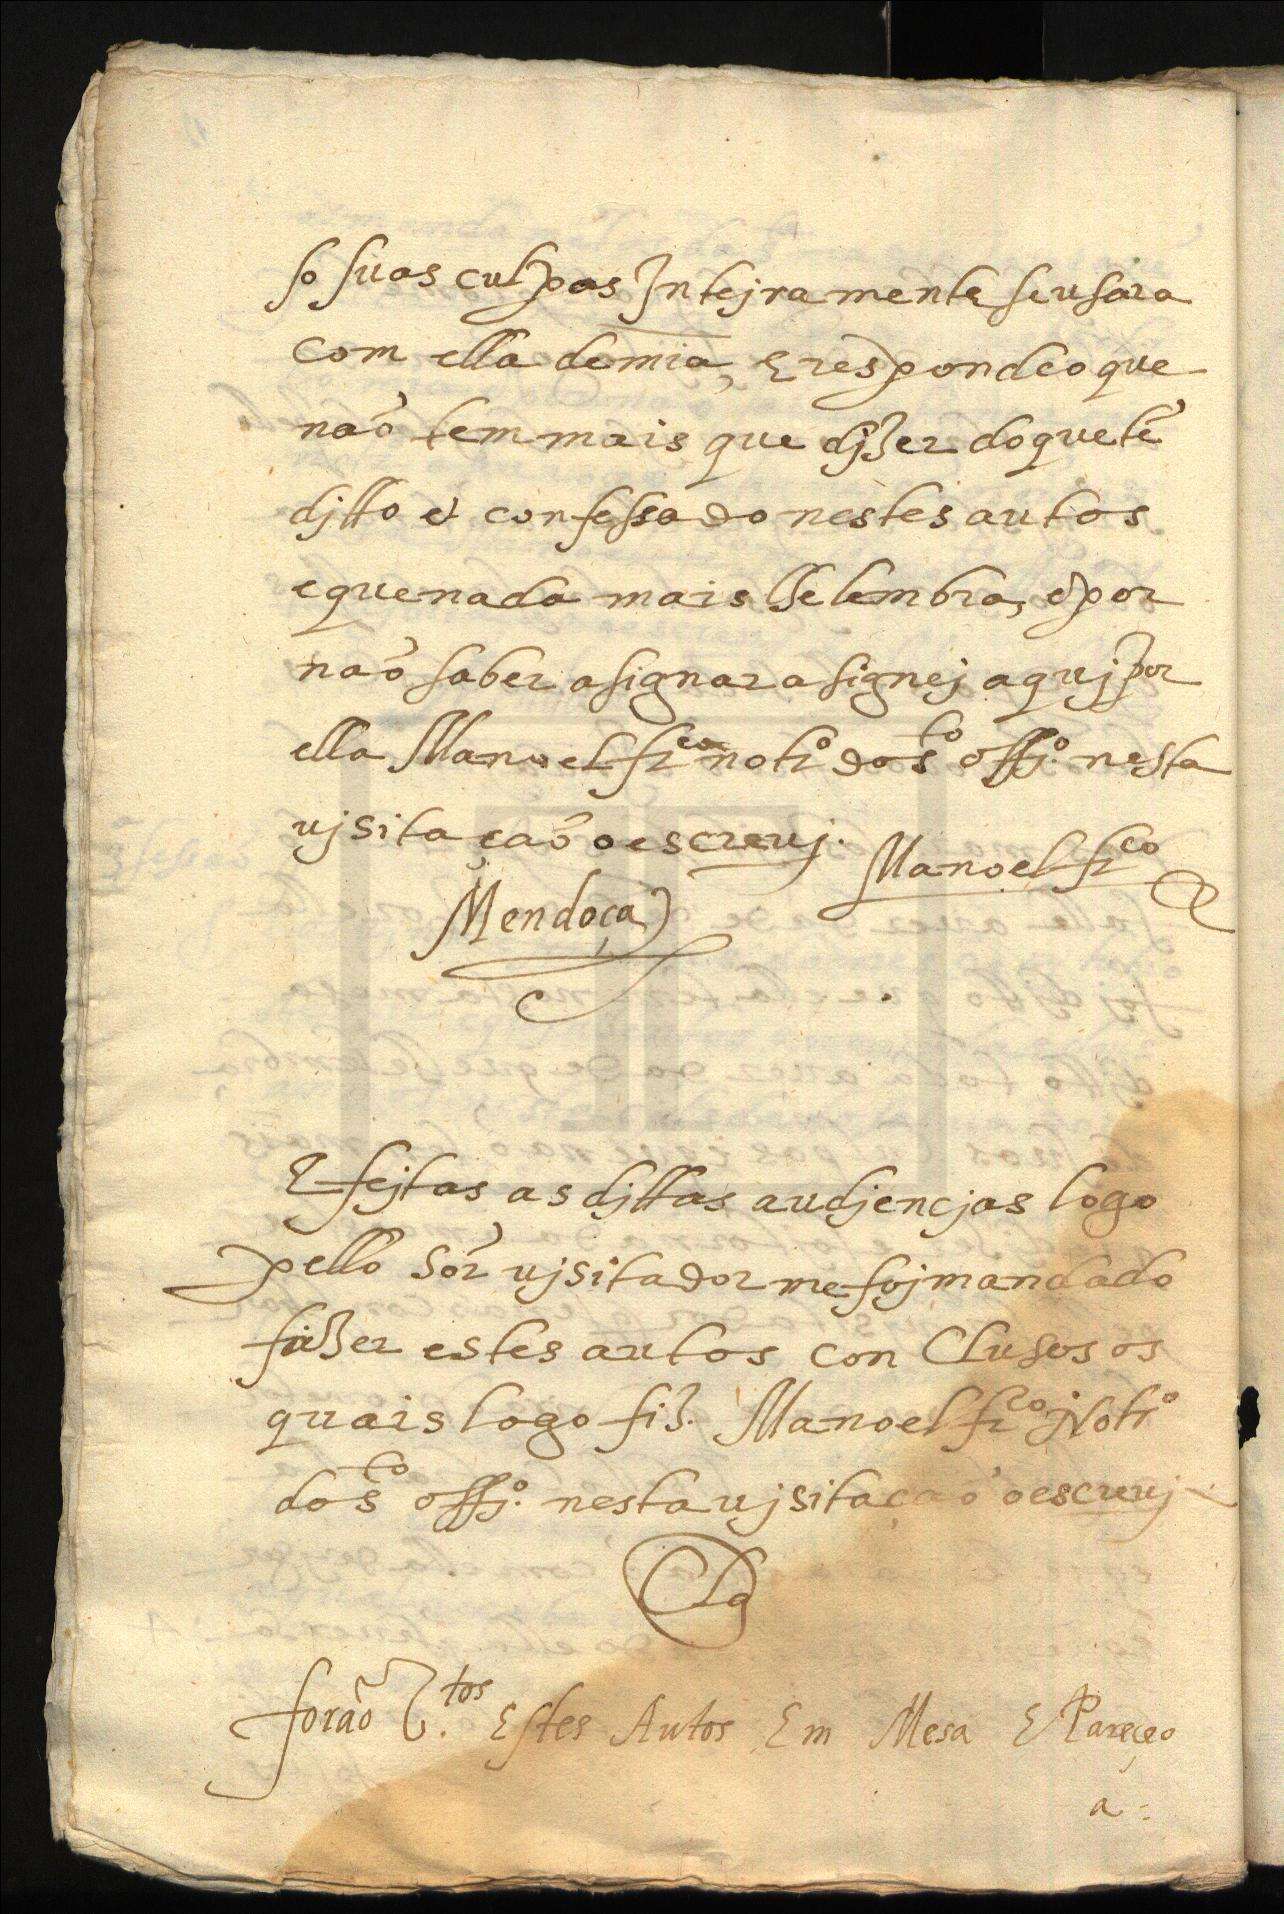 so suas culpas Intejramente se usara
com ella de mia, E respondeo que
naõ tem mais que djzer do que tẽ
djtto et confessado nestes autos
e que nada mais lhe lembra, e por
naõ saber asignar asignej aquj por
ella Manoel frco notro do sto offjo. nesta
vjsitaçaõ o escrevj. Manoel frco
Mendoça
E fejtas as djttas audjencjas logo
pello Sõr vjsitador me foj mandado
fazer estes autos con Clusos os
quais logo fiz. Manoel frco Notro
do sto offjo. nesta vjsitaçaõ o escrevj
Clos
forão V.tos Estes Autos Em Mesa E Pareçeo
a: